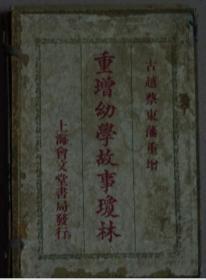 古越蔡東藩重增
重增幼學故事瓊林
上海會文堂書局發行